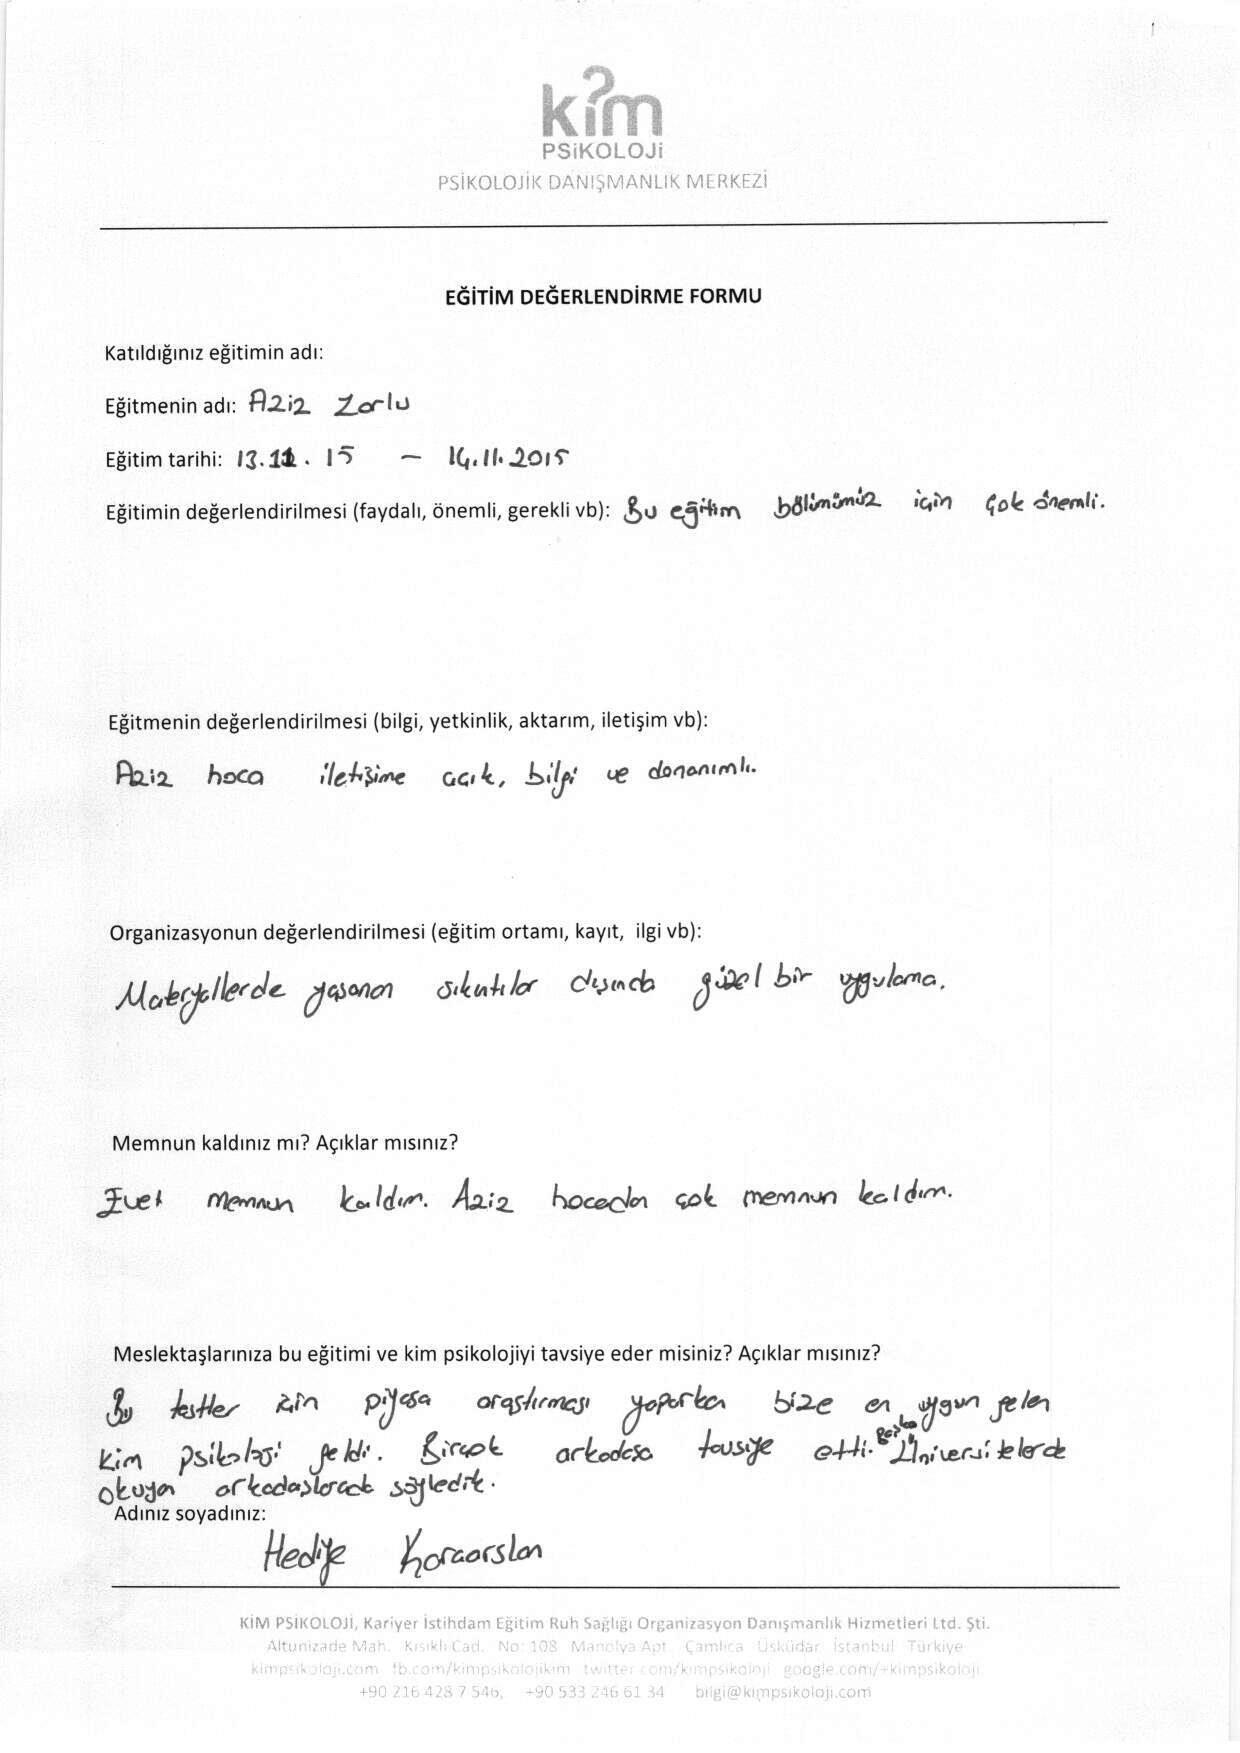 kim
PSiKOLOJi
PSİKOLOJİK DANIŞMANLIK MERKEZİ
EĞİTİM DEĞERLENDİRME FORMU
Katıldığınız eğitimin adı:
Eğitmenin adı: Aziz Zorlu
Eğitim tarihi: 13.11.15 – 14.11.2015
Eğitimin değerlendirilmesi (faydalı, önemli, gerekli vb): Bu eğitim bölümümüz için çok önemli.
Eğitmenin değerlendirilmesi (bilgi, yetkinlik, aktarım, iletişim vb):
Aziz hoca iletişime açık, bilgi ve donanımlı.
Organizasyonun değerlendirilmesi (eğitim ortamı, kayıt, ilgi vb):
Materyallerde yaşanan sıkıntılar dışında güzel bir uygulama.
Memnun kaldınız mı? Açıklar mısınız?
Evet memnun kaldım. Aziz hocadan çok memnun kaldım.
Meslektaşlarınıza bu eğitimi ve kim psikolojiyi tavsiye eder misiniz? Açıklar mısınız?
Bu testler için piyasa araştırması yaparken bize en uygun gelen
kim psikoloji geldi. Birçok arkadaşa tavsiye etti. Başka Üniversitelerde
okuyan arkadaşlarada söyledik.
Adınız soyadınız:
Hediye Karaarslan
KİM PSİKOLOJİ, Kariyer İstihdam Eğitim Ruh Sağlığı Organizasyon Danışmanlık Hizmetleri Ltd. Şti.
Altunizade Mah. Kısıklı Cad. No: 108 Manolya Apt. Çamlıca Üsküdar İstanbul Türkiye
kimpsikoloji.com fb.com/kimpsikolojikim twitter.com/kimpsikoloji google.com/+kimpsikoloji
+90 216 428 7 546, +90 533 246 61 34 bilgi@kimpsikoloji.com